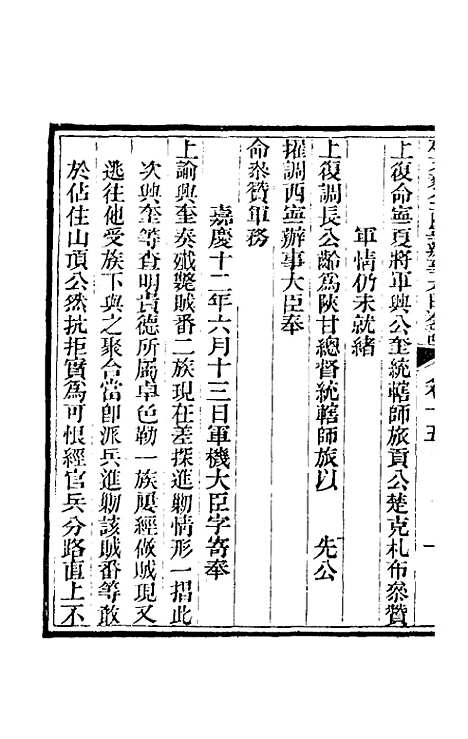 上復命寧夏將軍興公奎統轄師旅貢公楚克札布叅贊
軍情仍未就緒
上復調長公齡爲陝甘總督統轄師旅以 先公
擢調西寧辦事大臣奉
命叅贊軍務
嘉慶十二年六月十三日軍機大臣字寄奉
上諭興奎奏殲斃賊番二族現在差探進勦情形一摺此
次興奎等查明貴德所屬卓色勒一族屢經做賊現又
逃往他受族下與之聚合當卽派兵進勦該賊番等敢
於佔住山頂公然抗拒實爲可恨經官兵分路直上不
卷十五
一